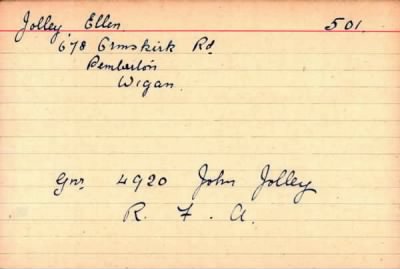 Jolley, Ellen. 501.
678 Ormskirk Rd
Pemberton
Wigan.
Gnr 4920 John Jolley
R. F. A.